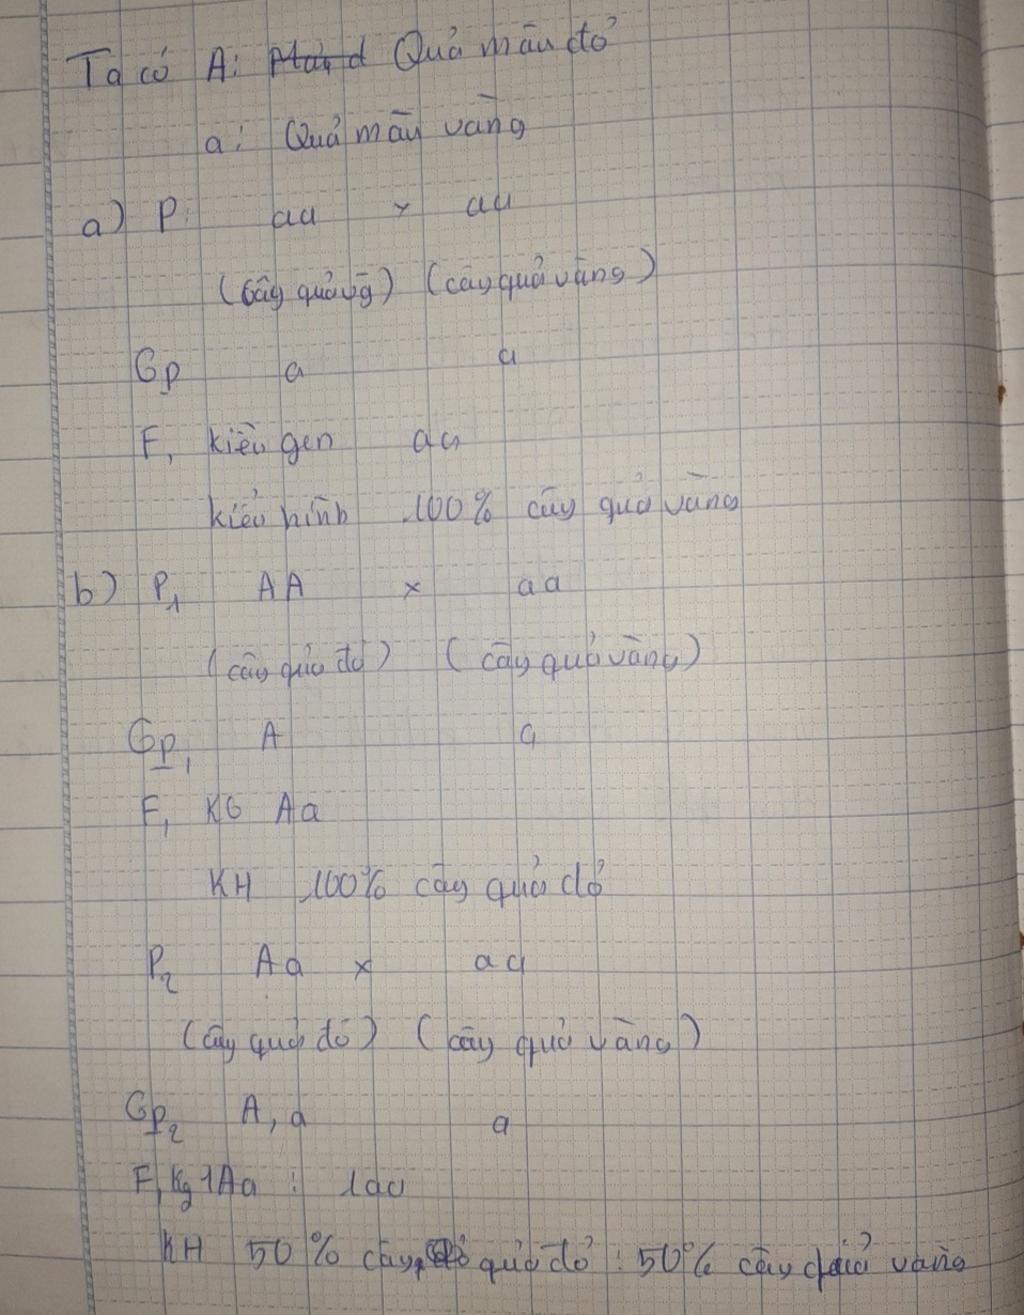 Ta có A: Quả màu đỏ
a: Quả màu vàng
a) P: aa x aa
(Cây quả vg) (cây quả vàng)
Gp a a
F1 kiểu gen aa
kiểu hình 100% cây quả vàng
b) P1 AA x aa
(cây quả đỏ) (cây quả vàng)
Gp1 A a
F1 KG Aa
KH 100% cây quả đỏ
P2 Aa x aa
(Cây quả đỏ) (cây quả vàng)
Gp2 A, a a
F1 Kg 1Aa : 1aa
KH 50% cây quả đỏ : 50% cây quả vàng